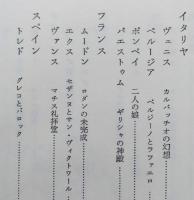 イタリヤ
ヴェニス　カルパッチオの幻想………
ペルージア　ペルジーノとラファエロ………
ポンペイ　二人の娘………
パエストゥム　ギリシャの神殿………
フランス
ムードン　ロダンの未完成………
エクス　セザンヌとサン・ヴィクトワール………
ヴァンス　マチス礼拝堂………
スペイン
トレド　グレコとバロック………